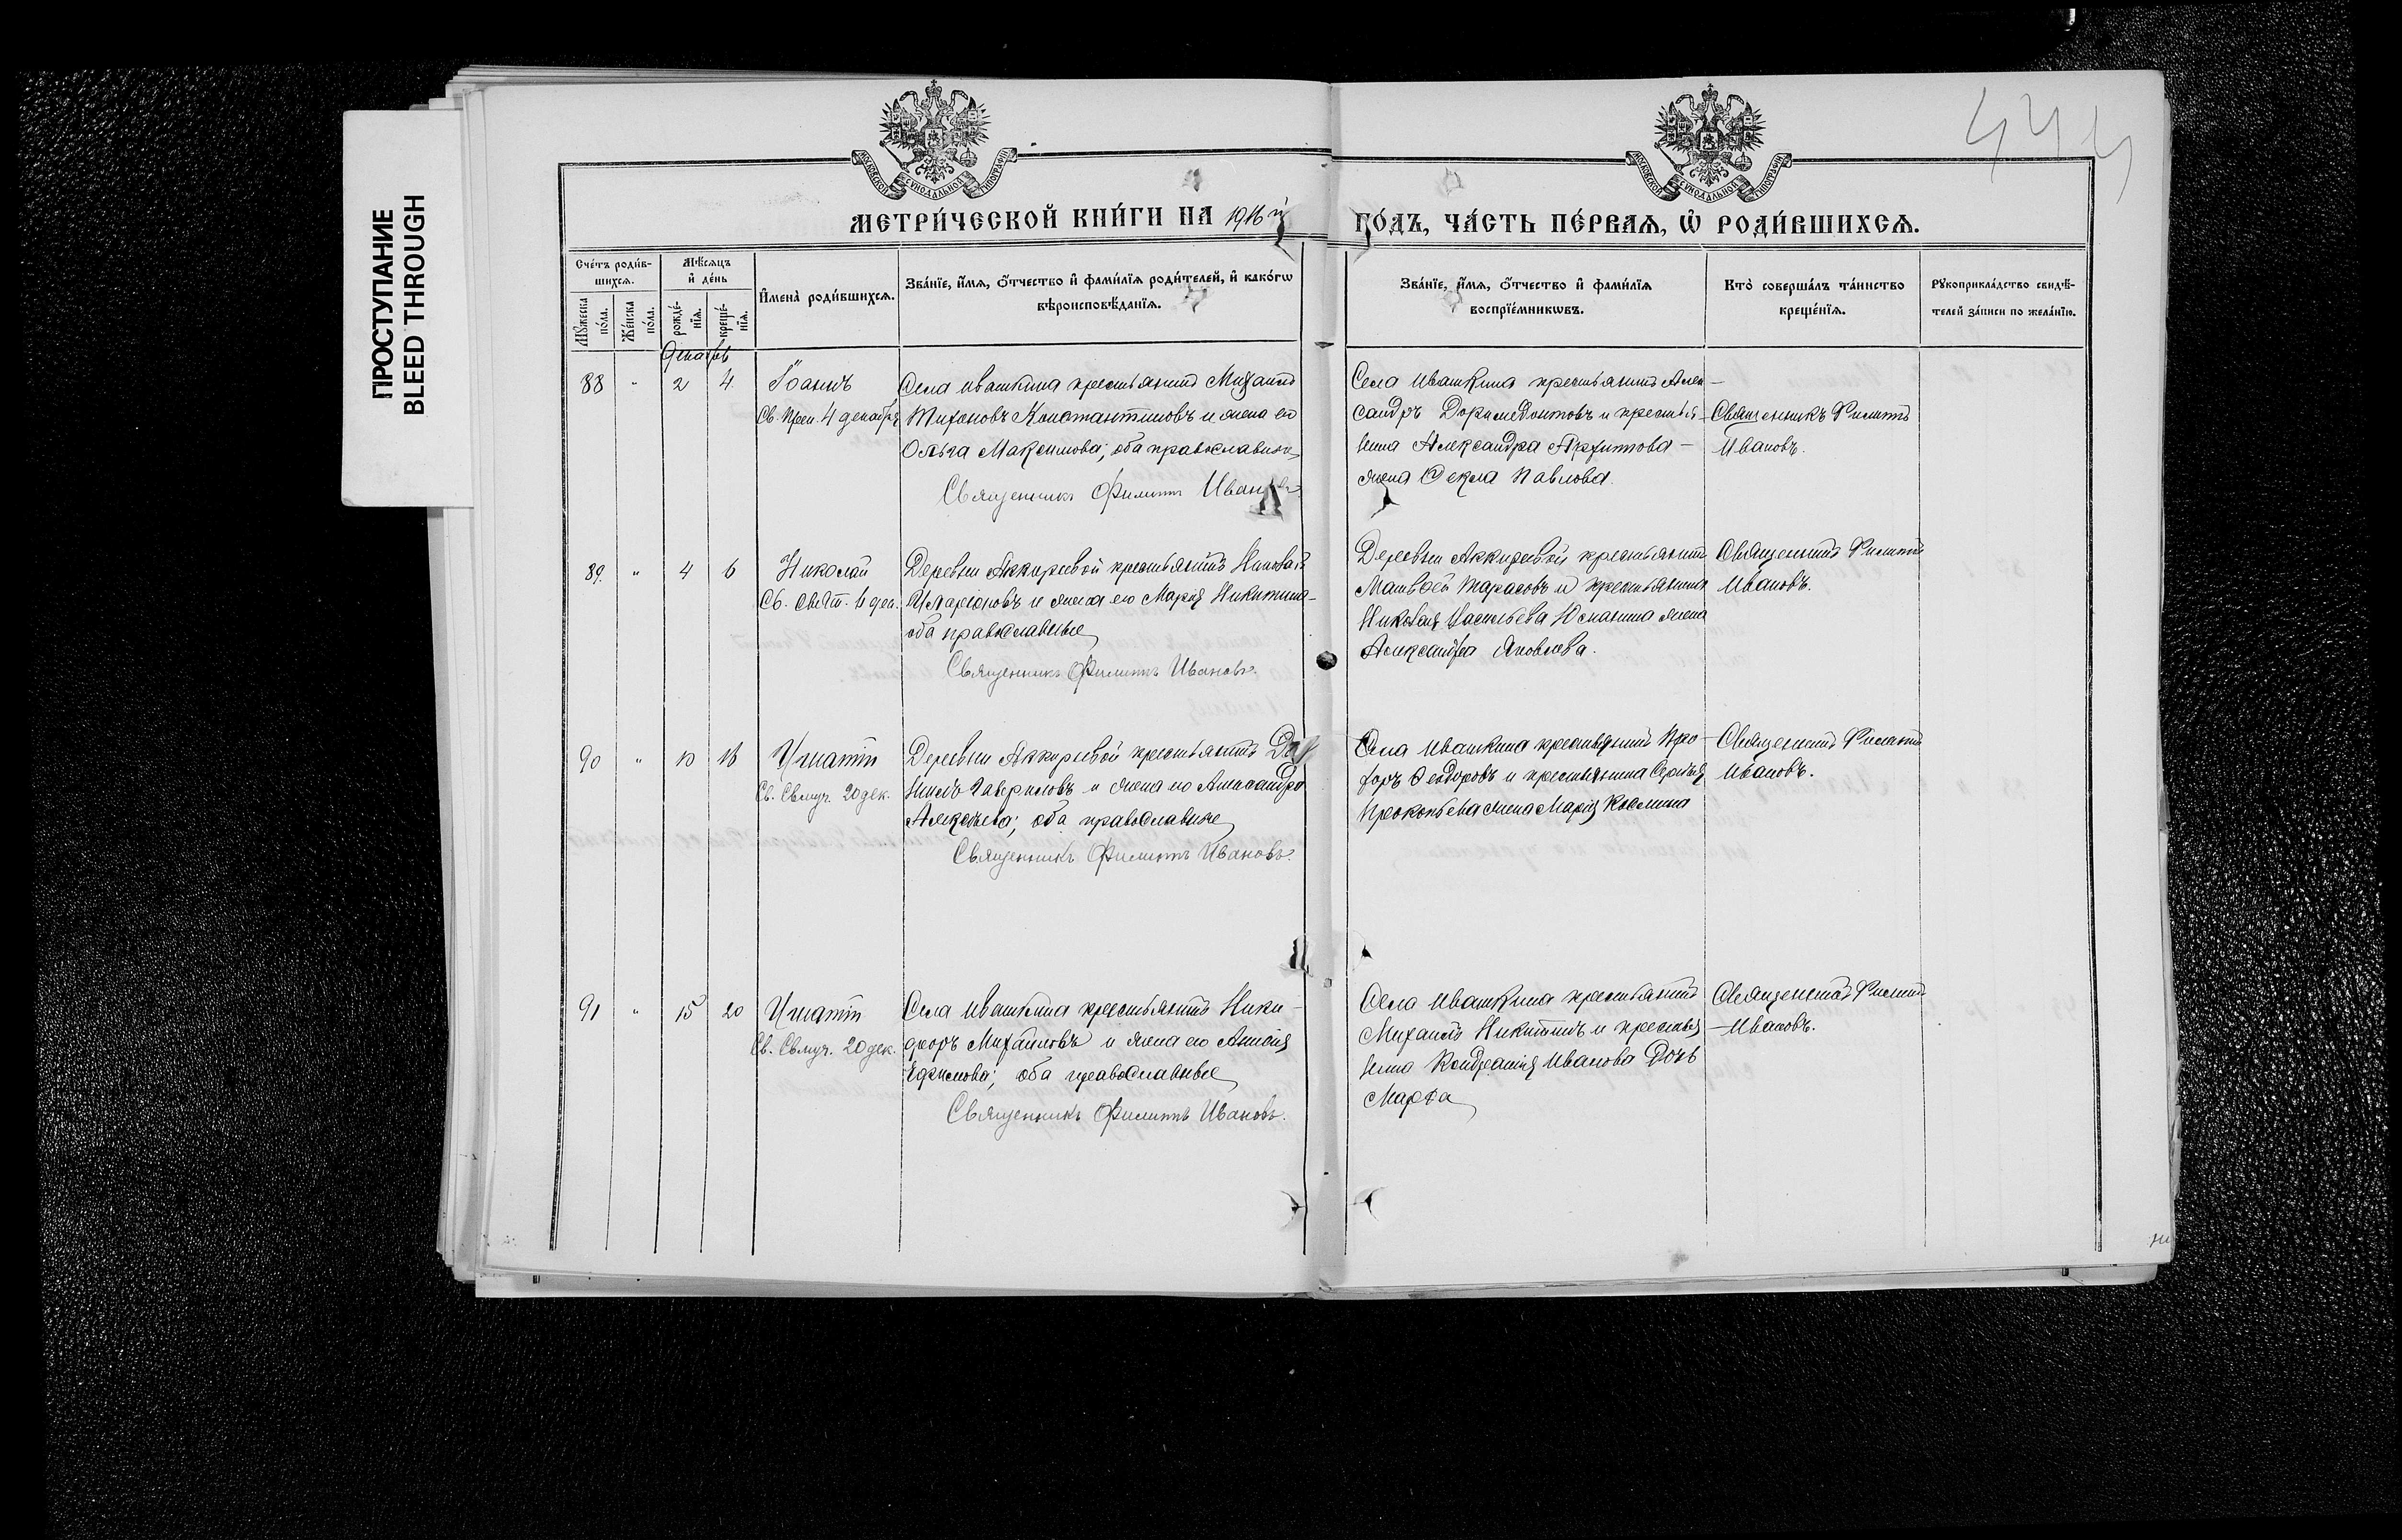 ПРОСТУПАНИЕ
BLEED THROUGH
444
МОСКОВСКОЙ СѴНОДАЛЬНОЙ ТИПОГРАФІИ
МОСКОВСКОЙ СѴНОДАЛЬНОЙ ТИПОГРАФІИ
МЕТРИ́ЧЕСКОЙ КНИ́ГИ НА 1916 й
ГО́ДЪ, ЧА́СТЬ ПЕ́РВАЯ, Ѽ РОДИ́ВШИХСЯ.
Сче́тъ роди́в-
шихся.
Мꙋжеска по́ла.
Же́нска по́ла.
Мѣ́сяцъ
и҆ де́нь
рожде́-
нїя.
креще́-
нїя.
И҆мена̀ роди́вшихся.
Зва́нїе, и҆́мя, ѻ҆́тчество и҆ фами́лїя роди́телей, и҆ како́гѡ
вѣроисповѣ́данїя.
Зва́нїе, и҆́мя, ѻ҆́тчество и҆ фами́лїя
воспрїе́мникѡвъ.
Кто̀ соверша́лъ та́инство
креще́нїя.
Рꙋкоприкла́дство свидѣ́-
телей за́писи по жела́нїю.
Декабрь
88 " 2 4 Іоаннъ
Св. Преп. 4 декабря
Села Ивашкина крестьянинъ Михаилъ
Тихоновъ Константиновъ и жена его
Ольга Максимова; оба православные
Священникъ Филиппъ Ивановъ
Села Ивашкина крестьянинъ Алек-
сандръ Доримедонтовъ и крестья-
нина Александра Архипова
жена Ѳекла Павлова.
Священникъ Филиппъ
Ивановъ.
89. " 4 6 Николай
Св. Свят. 6 дек.
Деревни Аккиреевой крестьянинъ Николай
Иларіоновъ и жена его Марія Никитина
оба православные
Священникъ Филиппъ Ивановъ.
Деревни Аккиреевой крестьянинъ
Матвѣй Тарасовъ и крестьянина
Николая Васильева жена
Александра Яковлева.
Священникъ Филиппъ
Ивановъ.
90 " 10 16 Игнатій
Св. Свмуч. 20 дек.
Деревни Аккиреевой крестьянинъ Да-
ніилъ Гавриловъ и жена его Александра
Алексѣева; оба православные
Священникъ Филиппъ Ивановъ.
Села Ивашкина крестьянинъ
Ѳеодоровъ и крестьянина Сергѣя
Прокопьева жена Марія Космина
Священникъ Филиппъ
Ивановъ.
91 " 15 20 Игнатій
Св. Свмуч. 20 дек.
Села Ивашкина крестьянинъ Ники-
форъ Михайловъ и жена его Анисія
Ефимова; оба православные
Священникъ Филиппъ Ивановъ.
Села Ивашкина крестьянинъ
Михаилъ Никитинъ и крестья-
нина Кондратія Иванова дочь
Марѳа
Священникъ Филиппъ
Ивановъ.